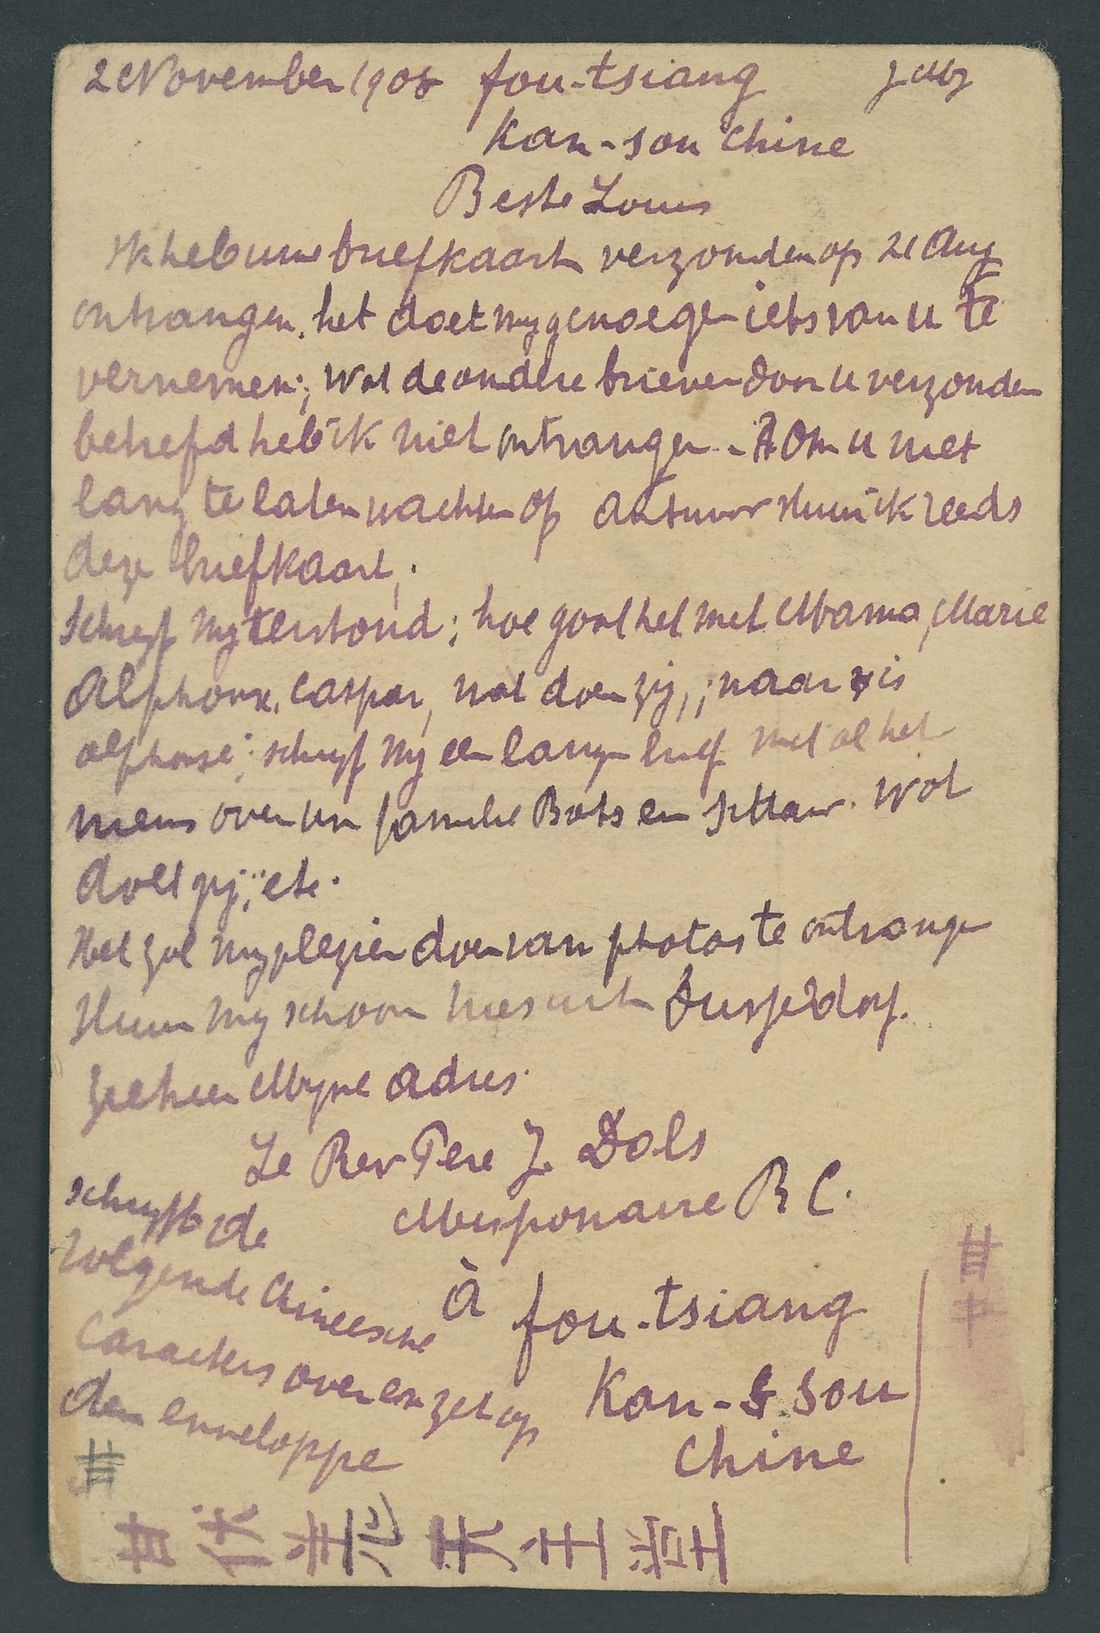 2 November 1908 fou-tsiang
Kan-sou Chine
Beste Louis
Ik heb uwe briefkaart verzonden op 21 Aug
ontvangen. het doet my genoegen iets van u te
vernemen; Wat de andere brieven door u verzonden
betrefd heb ik niet ontvangen. - Om u niet
lang te laten wachten op antwoor stuur ik reeds
deze briefkaart.
Schryf my terstond; hoe gaat het met Mama, Marie
Alphons, Caspar, wat doen zij,; waar is
alphonse; schryf my een lange brief met al het
nieuws over un familie Bots en Sittar. Wat
doet gij, etc.
Het zal my plezier doen van photos te ontvange
Stuur my schoon uit Dusseldorf.
Zie hier Myne adres.
Le Rev Pere J. Dols
Missionaire R C.
À fou-tsiang
Kan-sou
Chine
schryft de
volgende Chineesche
Caracters over en zet op
den enveloppe